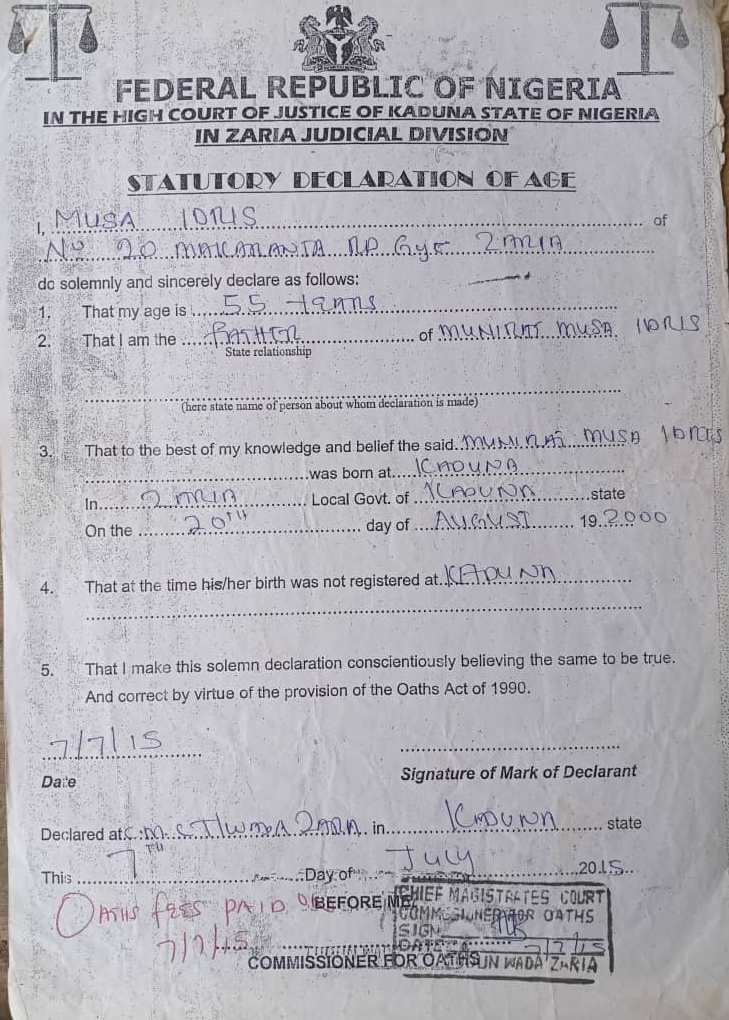 FEDERAL REPUBLIC OF NIGERIA
IN THE HIGH COURT OF JUSTICE OF KADUNA STATE OF NIGERIA
IN ZARIA JUDICIAL DIVISION
STATUTORY DECLARATION OF AGE
I, MUSA IDRIS of
No 20 MAKARANTA RD Gyc ZARIA
do solemnly and sincerely declare as follows:
1. That my age is 55 years
2. That I am the FATHER of MUNIRAT MUSA IDRIS
State relationship
(here state name of person about whom declaration is made)
3. That to the best of my knowledge and belief the said MUNIRAT MUSA IDRIS
was born at KADUNA
In ZARIA Local Govt. of KADUNA state
On the 20TH day of AUGUST 19 2000
4. That at the time his/her birth was not registered at KADUNA
5. That I make this solemn declaration conscientiously believing the same to be true.
And correct by virtue of the provision of the Oaths Act of 1990.
7/7/15
Date Signature of Mark of Declarant
Declared at C.M.C T/WADA ZARIA in KADUNA state
This 7TH Day of July 2015
OATHS fees PAID BEFORE ME
7/7/15
COMMISSIONER FOR OATHS
CHIEF MAGISTRATES COURT
COMMISSIONER FOR OATHS
SIGN
DATE 7/7/15
TUDUN WADA ZARIA